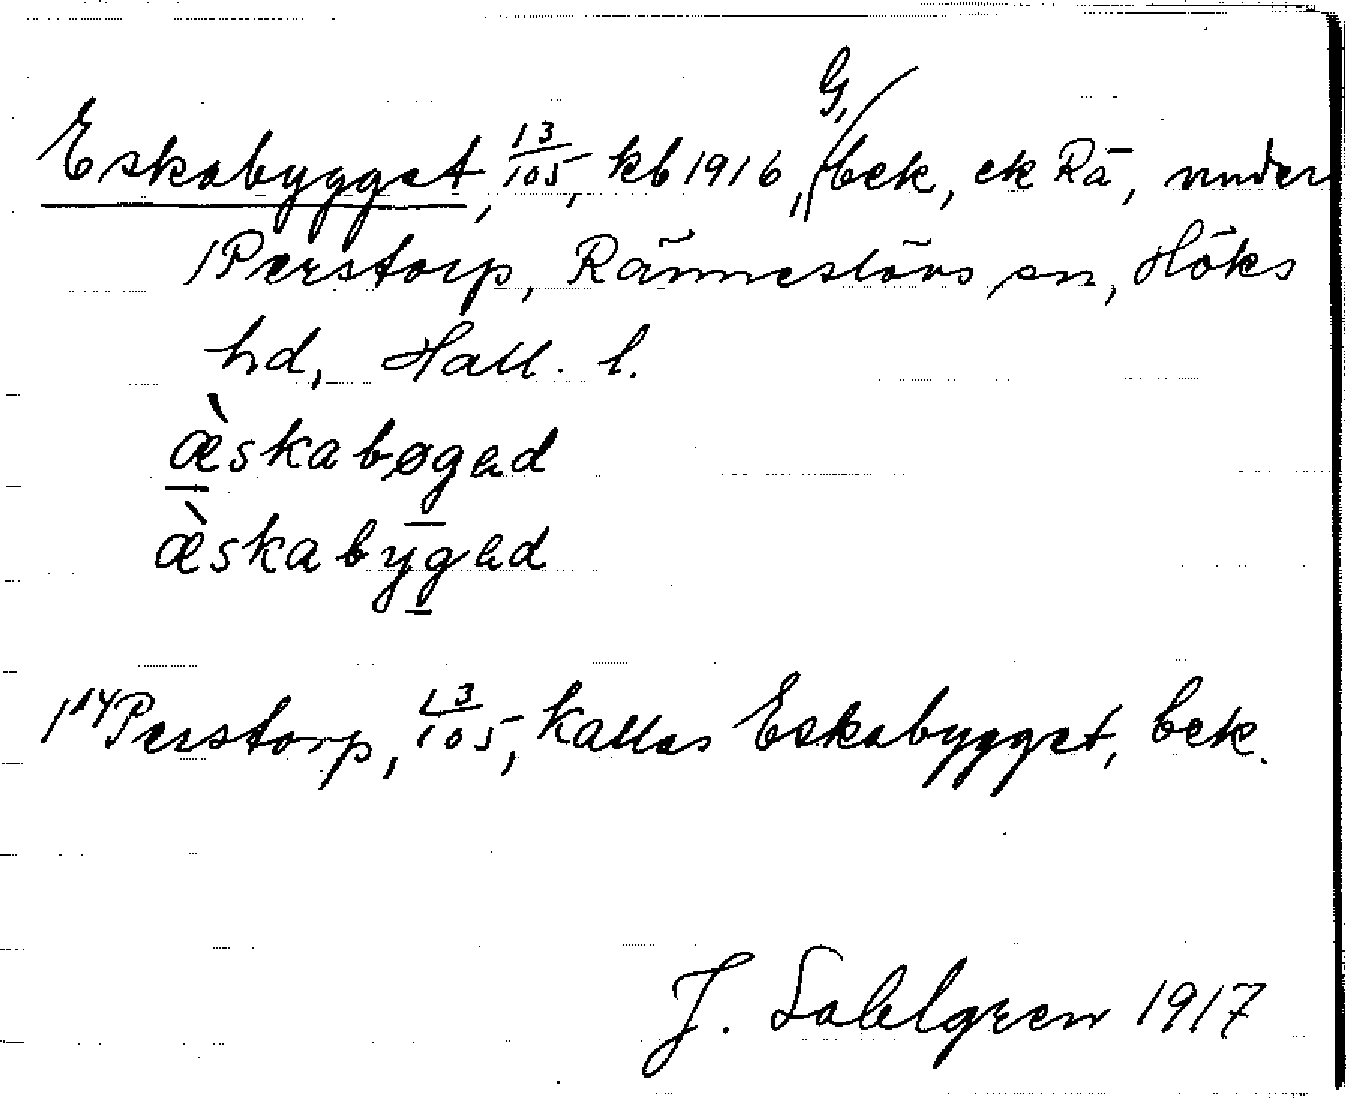 Eskabygget, 13/105, kb 1916, G, bek, ek Rä, under
1 Perstorp, Ränneslövs sn, Höks
hd, Hall. l.
æ̀skabøgəd
æ̀skabygəd
1¹⁴ Perstorp, 13/105, kallas Eskabygget, bek.
J. Sahlgren 1917